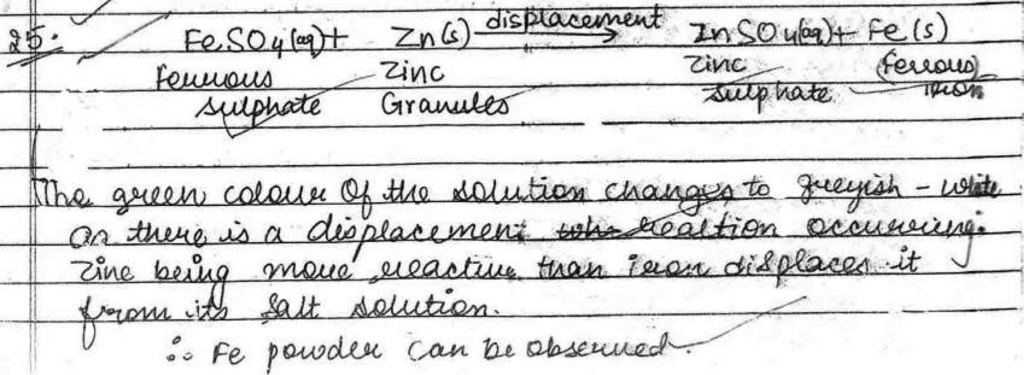 25. FeSO4(aq) + Zn(s) displacement → ZnSO4(aq) + Fe(s)
Ferrous Zinc Zinc (ferrous)
sulphate Granules sulphate Iron
The green colour of the solution changes to greyish - white
as there is a displacement reaction occurring.
Zinc being more reactive than iron displaces it
from its salt solution.
∴ Fe powder can be observed.